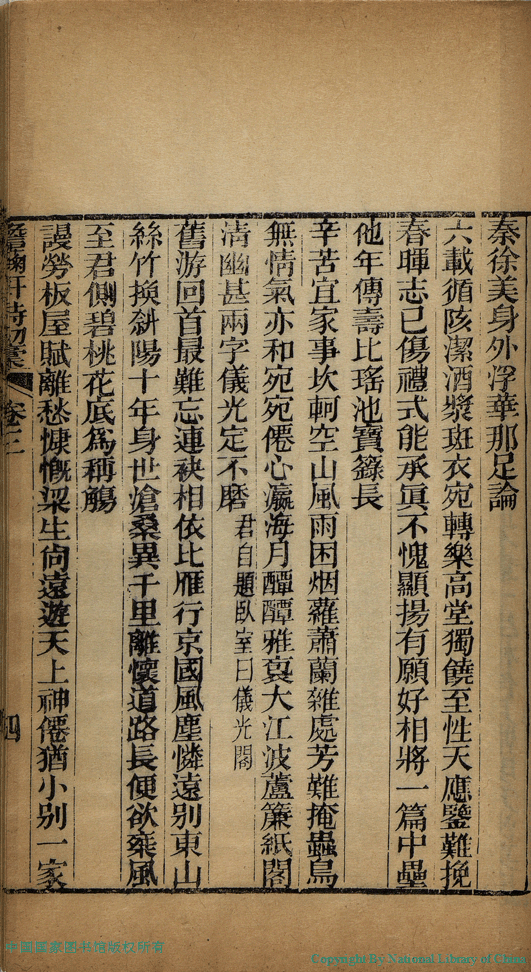 秦徐美身外浮華那足論
六載循陔潔酒漿斑衣宛轉樂高堂獨饒至性天應鑒難挽
春暉志已傷禮式能承眞不愧顯揚有願好相將一篇中壘
他年傳壽比瑤池寶籙長
辛苦宜家事坎軻空山風雨困烟蘿蕭蘭雜處芳難掩蟲鳥
無情氣亦和宛宛僊心瀛海月醰醰雅裒大江波蘆簾紙閣
清幽甚兩字儀光定不磨君自題臥室曰儀光閣
舊游回首最難忘連袂相依比雁行京國風塵憐遠別東山
絲竹換斜陽十年身世滄桑異千里離懷道路長便欲乘風
至君側碧桃花底爲稱觴
謾勞板屋賦離愁慷慨梁生尙遠遊天上神僊猶小别一家
軒詩初稾
卷三
四
中国国家图书馆版权所有
Copyright By National Library of China